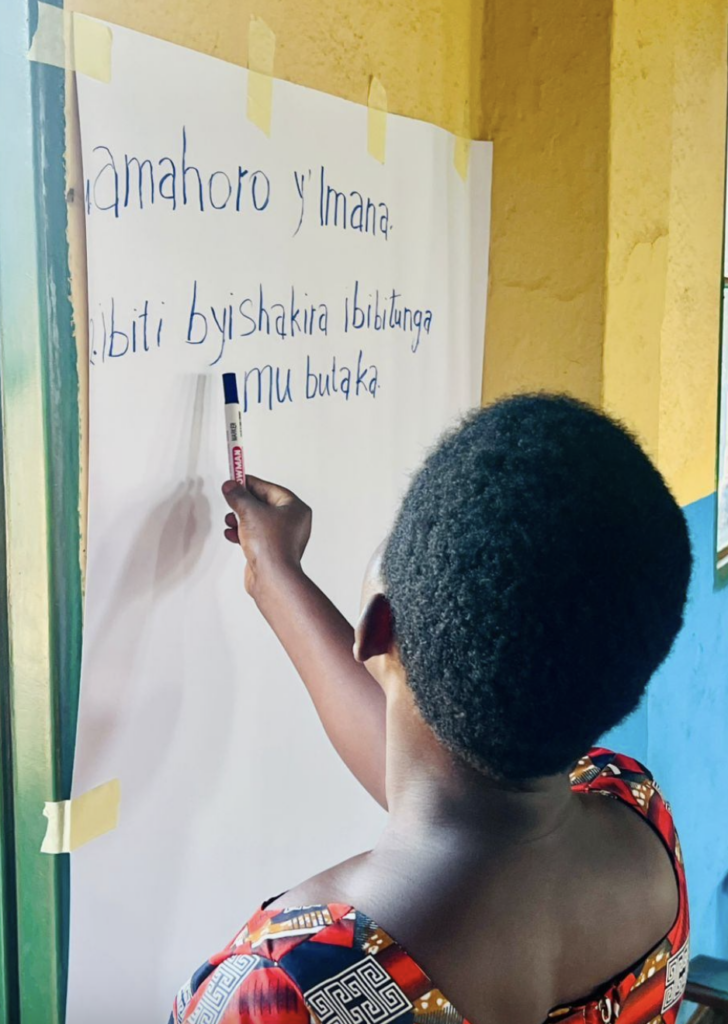 amahoro y'Imana.
ibiti byishakira ibibitunga
mu butaka.